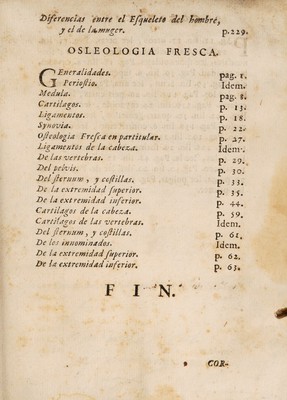 Diferencias entre el Esqueleto del hombre,
y el de la muger. p.229.
OSLEOLOGIA FRESCA.
GEneralidades. pag. 1.
Periostio. Idem.
Medula. pag. 8.
Cartilagos. p. 13.
Ligamentos. p. 18.
Synovia. p. 22.
Osteologia Fresca en particular. p. 27.
Ligamentos de la cabeza. Idem.
De las vertebras. p. 29.
Del pelvis. p. 30.
Del sternum, y costillas. p. 33.
De la extremidad superior. p. 35.
De la extremidad inferior. p. 44.
Cartilagos de la cabeza. p. 59.
Cartilagos de las vertebras. Idem.
Del sternum, y costillas. p. 61.
De los innominados. Idem.
De la extremidad superior. p. 62.
De la extremidad inferior. p. 63.
FIN.
COR-